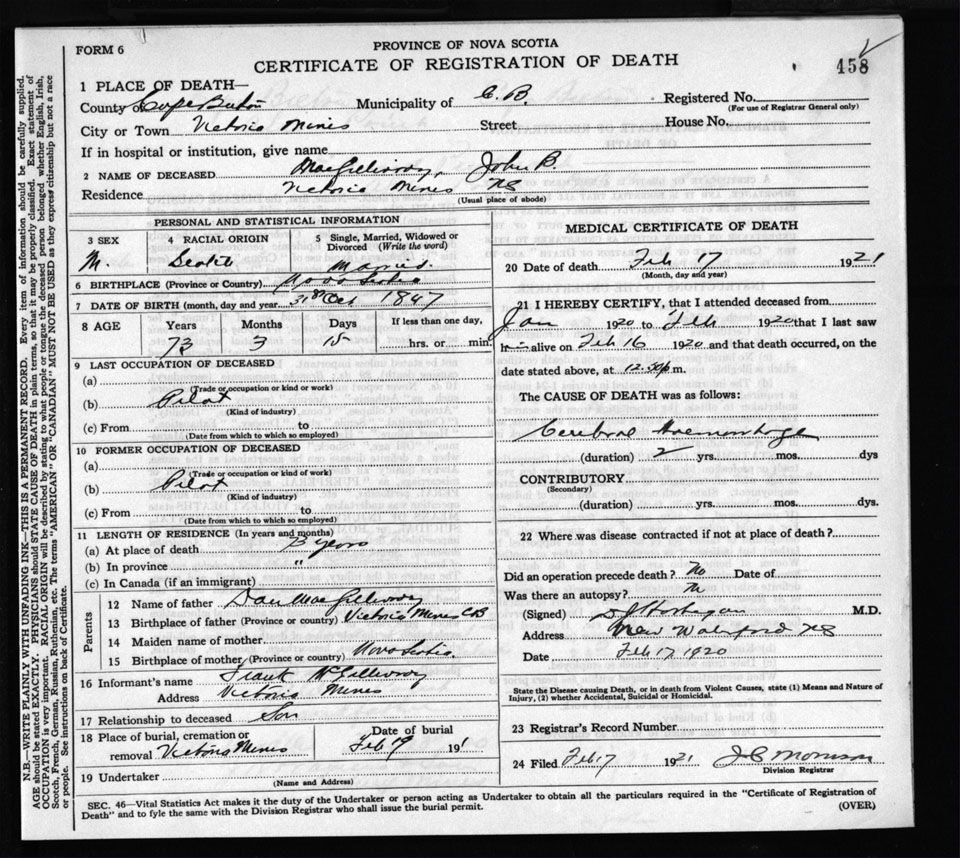 FORM 6
PROVINCE OF NOVA SCOTIA
CERTIFICATE OF REGISTRATION OF DEATH
458
1 PLACE OF DEATH—
County of Cape Breton Municipality of C. B. Registered No.
(For use of Registrar General only)
City or Town Victoria Mines Street House No.
If in hospital or institution, give name
2 NAME OF DECEASED MacGillivray, John B
Residence Victoria Mines NS
(Usual place of abode)
PERSONAL AND STATISTICAL INFORMATION
3 SEX M.
4 RACIAL ORIGIN Scotch
5 Single, Married, Widowed or Divorced (Write the word) Married.
6 BIRTHPLACE (Province or Country) Nova Scotia
7 DATE OF BIRTH (month, day and year) 31st Oct 1847
8 AGE Years Months Days If less than one day,
73 3 15 hrs. or min.
9 LAST OCCUPATION OF DECEASED
(a)
(Trade or occupation or kind or work)
(b) Pilot
(Kind of industry)
(c) From to
(Date from which to which so employed)
10 FORMER OCCUPATION OF DECEASED
(a)
(Trade or occupation or kind of work)
(b) Pilot
(Kind of industry)
(c) From to
(Date from which to which so employed)
11 LENGTH OF RESIDENCE (In years and months)
(a) At place of death years
(b) In province "
(c) In Canada (if an immigrant)
Parents
12 Name of father Dan MacGillivray
13 Birthplace of father (Province or country) Victoria Mines CB
14 Maiden name of mother
15 Birthplace of mother (Province or country) Nova Scotia
16 Informant's name Frank McGillivray
Address Victoria Mines
17 Relationship to deceased Son
18 Place of burial, cremation or removal Victoria Mines
Date of burial Feb 19 191
19 Undertaker
(Name and Address)
MEDICAL CERTIFICATE OF DEATH
20 Date of death Feb 17 1921
(Month, day and year)
21 I HEREBY CERTIFY, that I attended deceased from
Jan 1920 to Feb 1920 that I last saw
h alive on Feb 16 1920 and that death occurred, on the
date stated above, at 12.50 p m.
The CAUSE OF DEATH was as follows:
Cerebral Haemorrhage
(duration) 2 yrs. mos. dys
CONTRIBUTORY
(Secondary)
(duration) yrs. mos. dys.
22 Where was disease contracted if not at place of death?
Did an operation precede death? No Date of
Was there an autopsy?
(Signed) M.D.
Address New Waterford NS
Date Feb 17 1920
State the Disease causing Death, or in death from Violent Causes, state (1) Means and Nature of
Injury, (2) whether Accidental, Suicidal or Homicidal.
23 Registrar's Record Number
24 Filed Feb 17 1921 Morrison
Division Registrar
SEC. 46—Vital Statistics Act makes it the duty of the Undertaker or person acting as Undertaker to obtain all the particulars required in the "Certificate of Registration of
Death" and to fyle the same with the Division Registrar who shall issue the burial permit. (OVER)
N.B.—WRITE PLAINLY WITH UNFADING INK—THIS IS A PERMANENT RECORD. Every item of information should be carefully supplied.
AGE should be stated EXACTLY. PHYSICIANS should STATE CAUSE OF DEATH in plain terms, so that it may be properly classified. Exact statement of
OCCUPATION is very important. RACIAL ORIGIN will be described by stating to what people or tongue the deceased person belonged whether English, Irish,
Scotch, French, German, Russian, Ruthenian, etc. The terms "AMERICAN" OR "CANADIAN" MUST NOT BE USED as they express citizenship but not a race
or people. See instructions on back of Certificate.